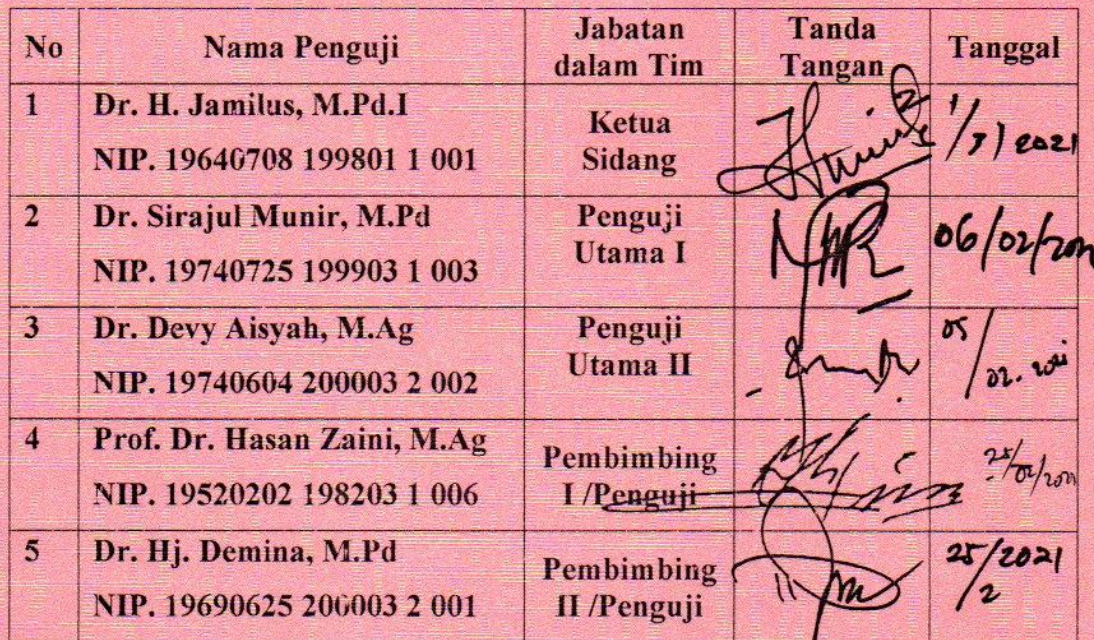 No Nama Penguji Jabatan dalam Tim Tanda Tangan Tanggal
1 Dr. H. Jamilus, M.Pd.I
NIP. 19640708 199801 1 001
Ketua
Sidang
1/3/2021
2 Dr. Sirajul Munir, M.Pd
NIP. 19740725 199903 1 003
Penguji
Utama I
06/02/2021
3 Dr. Devy Aisyah, M.Ag
NIP. 19740604 200003 2 002
Penguji
Utama II
05/02.2021
4 Prof. Dr. Hasan Zaini, M.Ag
NIP. 19520202 198203 1 006
Pembimbing
I /Penguji
5 Dr. Hj. Demina, M.Pd
NIP. 19690625 200003 2 001
Pembimbing
II /Penguji
25/2021
/2